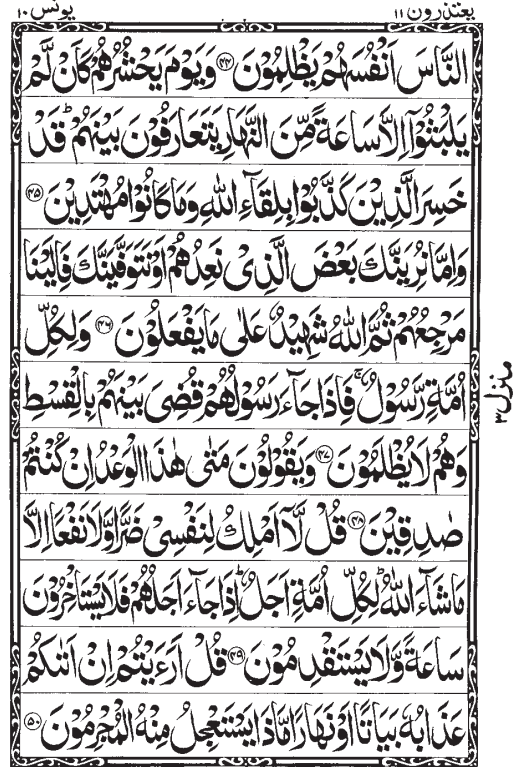 يعتذرون ١١ يونس ١٠
النَّاسَ اَنْفُسَهُمْ يَظْلِمُوْنَ ﴿۴۴﴾ وَيَوْمَ يَحْشُرُهُمْ كَاَنْ لَّمْ
يَلْبَثُوْۤا اِلَّا سَاعَةً مِّنَ النَّهَارِ يَتَعَارَفُوْنَ بَيْنَهُمْ ؕ قَدْ
خَسِرَ الَّذِيْنَ كَذَّبُوْا بِلِقَآءِ اللّٰهِ وَمَا كَانُوْا مُهْتَدِيْنَ ﴿۴۵﴾
وَاِمَّا نُرِيَنَّكَ بَعْضَ الَّذِىْ نَعِدُهُمْ اَوْ نَتَوَفَّيَنَّكَ فَاِلَيْنَا
مَرْجِعُهُمْ ثُمَّ اللّٰهُ شَهِيْدٌ عَلٰى مَا يَفْعَلُوْنَ ﴿۴۶﴾ وَلِكُلِّ
اُمَّةٍ رَّسُوْلٌ ۚ فَاِذَا جَآءَ رَسُوْلُهُمْ قُضِىَ بَيْنَهُمْ بِالْقِسْطِ
وَهُمْ لَا يُظْلَمُوْنَ ﴿۴۷﴾ وَيَقُوْلُوْنَ مَتٰى هٰذَا الْوَعْدُ اِنْ كُنْتُمْ
صٰدِقِيْنَ ﴿۴۸﴾ قُلْ لَّاۤ اَمْلِكُ لِنَفْسِىْ ضَرًّا وَّلَا نَفْعًا اِلَّا
مَا شَآءَ اللّٰهُ ؕ لِكُلِّ اُمَّةٍ اَجَلٌ ؕ اِذَا جَآءَ اَجَلُهُمْ فَلَا يَسْتَاْخِرُوْنَ
سَاعَةً وَّلَا يَسْتَقْدِمُوْنَ ﴿۴۹﴾ قُلْ اَرَءَيْتُمْ اِنْ اَتٰىكُمْ
عَذَابُهٗ بَيَاتًا اَوْ نَهَارًا مَّاذَا يَسْتَعْجِلُ مِنْهُ الْمُجْرِمُوْنَ ﴿۵۰﴾
منزل ٣